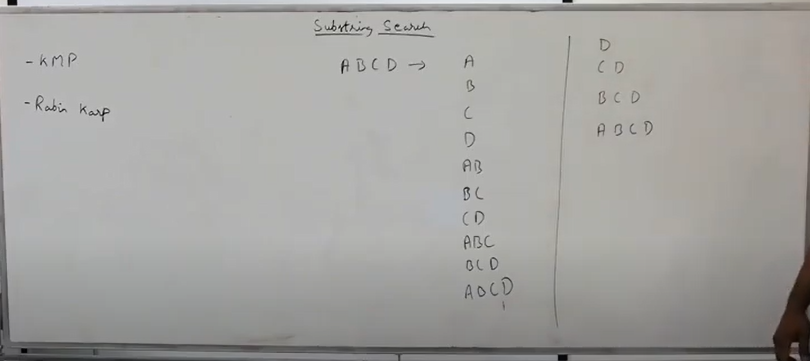 Substring Search
- KMP
- Rabin Karp
A B C D →
A
B
C
D
AB
BC
CD
ABC
BCD
ABCD
D
C D
B C D
A B C D